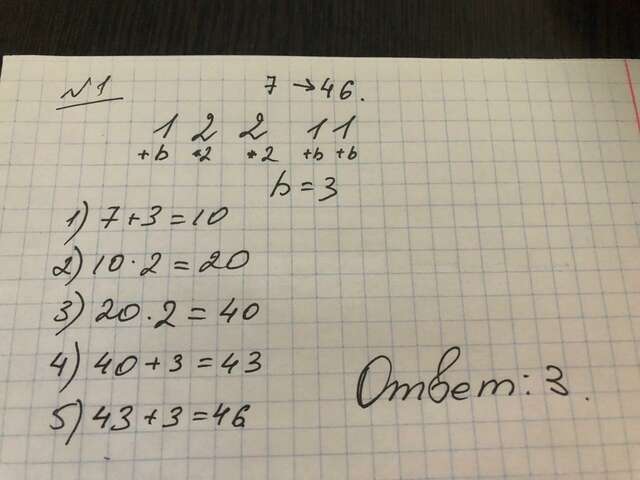 №1 7 → 46.
1 2 2 1 1
+b *2 *2 +b +b
b = 3
1) 7 + 3 = 10
2) 10 · 2 = 20
3) 20 · 2 = 40
4) 40 + 3 = 43
5) 43 + 3 = 46
Ответ: 3.